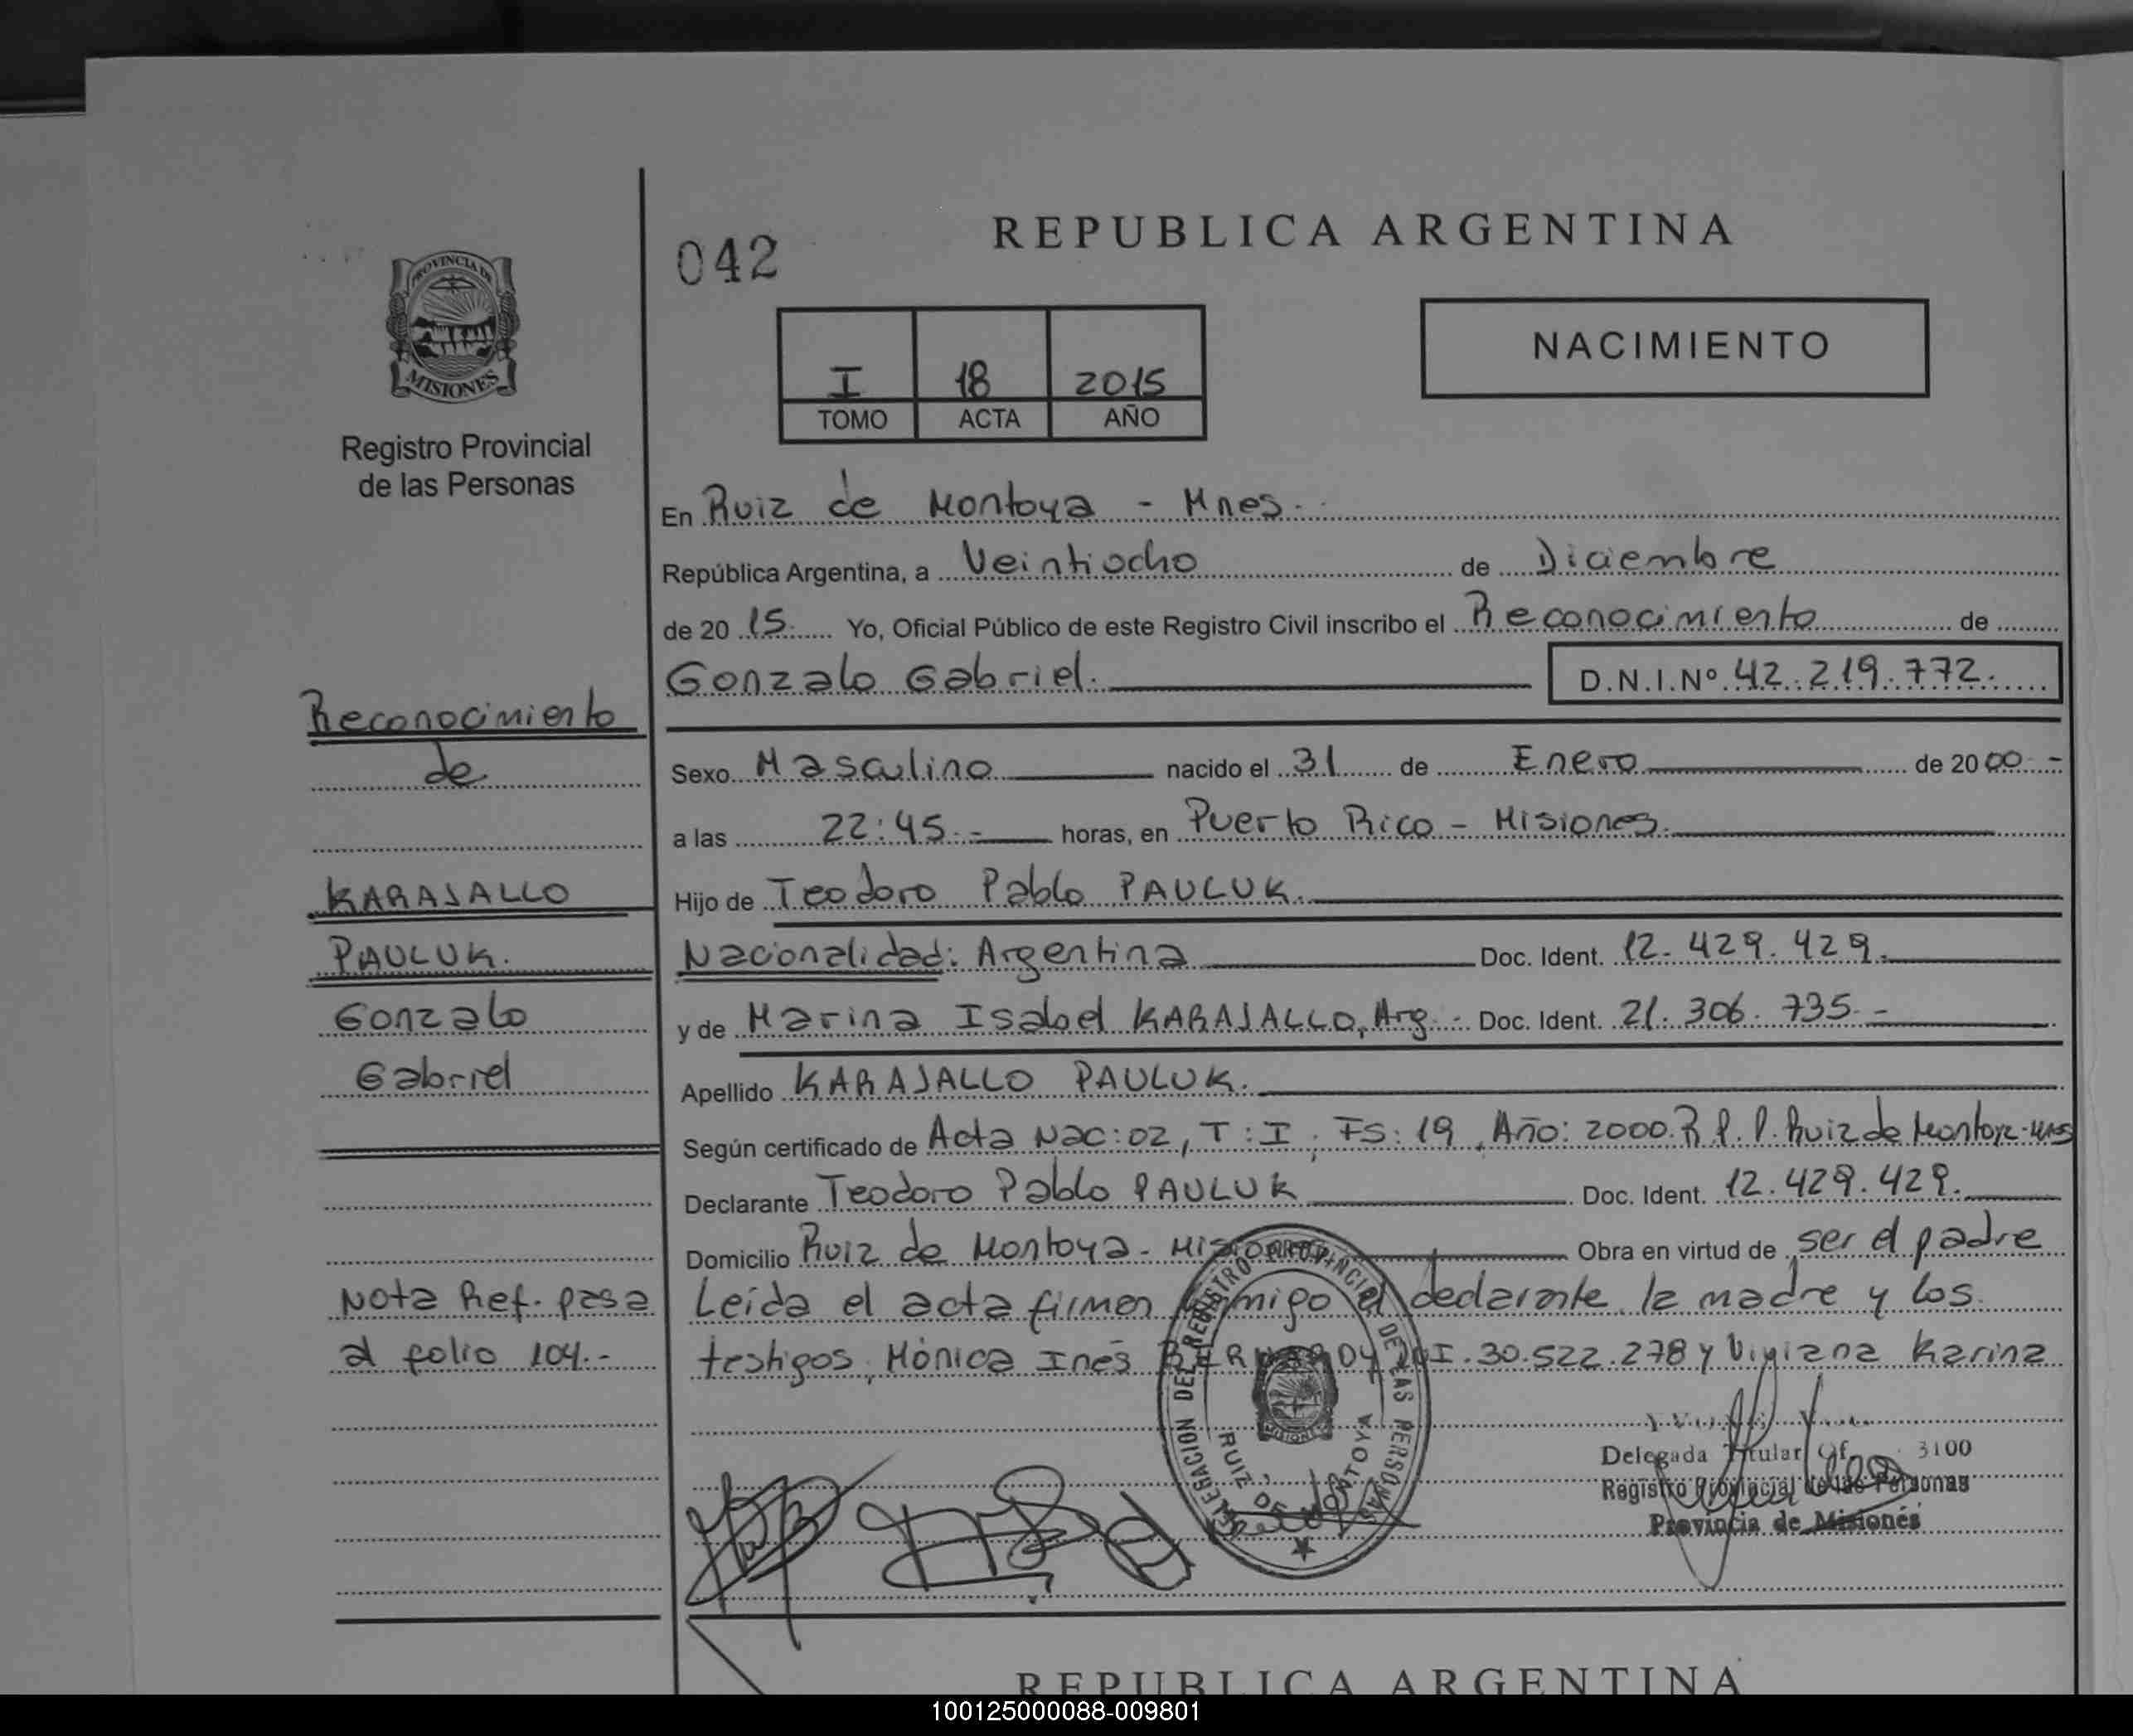 042
REPUBLICA ARGENTINA
PROVINCIA DE
MISIONES
Registro Provincial
de las Personas
I 18 2015
TOMO ACTA AÑO
NACIMIENTO
En Ruiz de Montoya - Mnes.
República Argentina, a Veintiocho de Diciembre
de 20 15. Yo, Oficial Público de este Registro Civil inscribo el Reconocimiento de
Gonzalo Gabriel. D.N.I.Nº 42.219.772.
Sexo Masculino nacido el 31 de Enero de 20 00.-
a las 22:45.- horas, en Puerto Rico - Misiones.
Hijo de Teodoro Pablo PAULUK.
Nacionalidad: Argentina Doc. Ident. 12.429.429.
y de Marina Isabel KARAJALLO, Arg.- Doc. Ident. 21.306.735.-
Apellido KARAJALLO PAULUK.
Según certificado de Acta Nac: 02, T: I, Fs: 19, Año: 2000. R.P.P. Ruiz de Montoya-
Declarante Teodoro Pablo PAULUK Doc. Ident. 12.429.429.
Domicilio Ruiz de Montoya - Misiones Obra en virtud de ser el padre
Leida el acta firman conmigo el declarante, la madre y los
testigos, Mónica Inés DNI. 30.522.278 y Viviana Karina
Reconocimiento
de
KARAJALLO
PAULUK.
Gonzalo
Gabriel
Nota Ref. pasa
al folio 104.-
DELEGACION DEL REGISTRO PROVINCIAL DE LAS PERSONAS
RUIZ DE MONTOYA
MISIONES
Delegada Titular Of. 3100
Registro Provincial de las Personas
Provincia de Misiones
REPUBLICA ARGENTINA
100125000088-009801